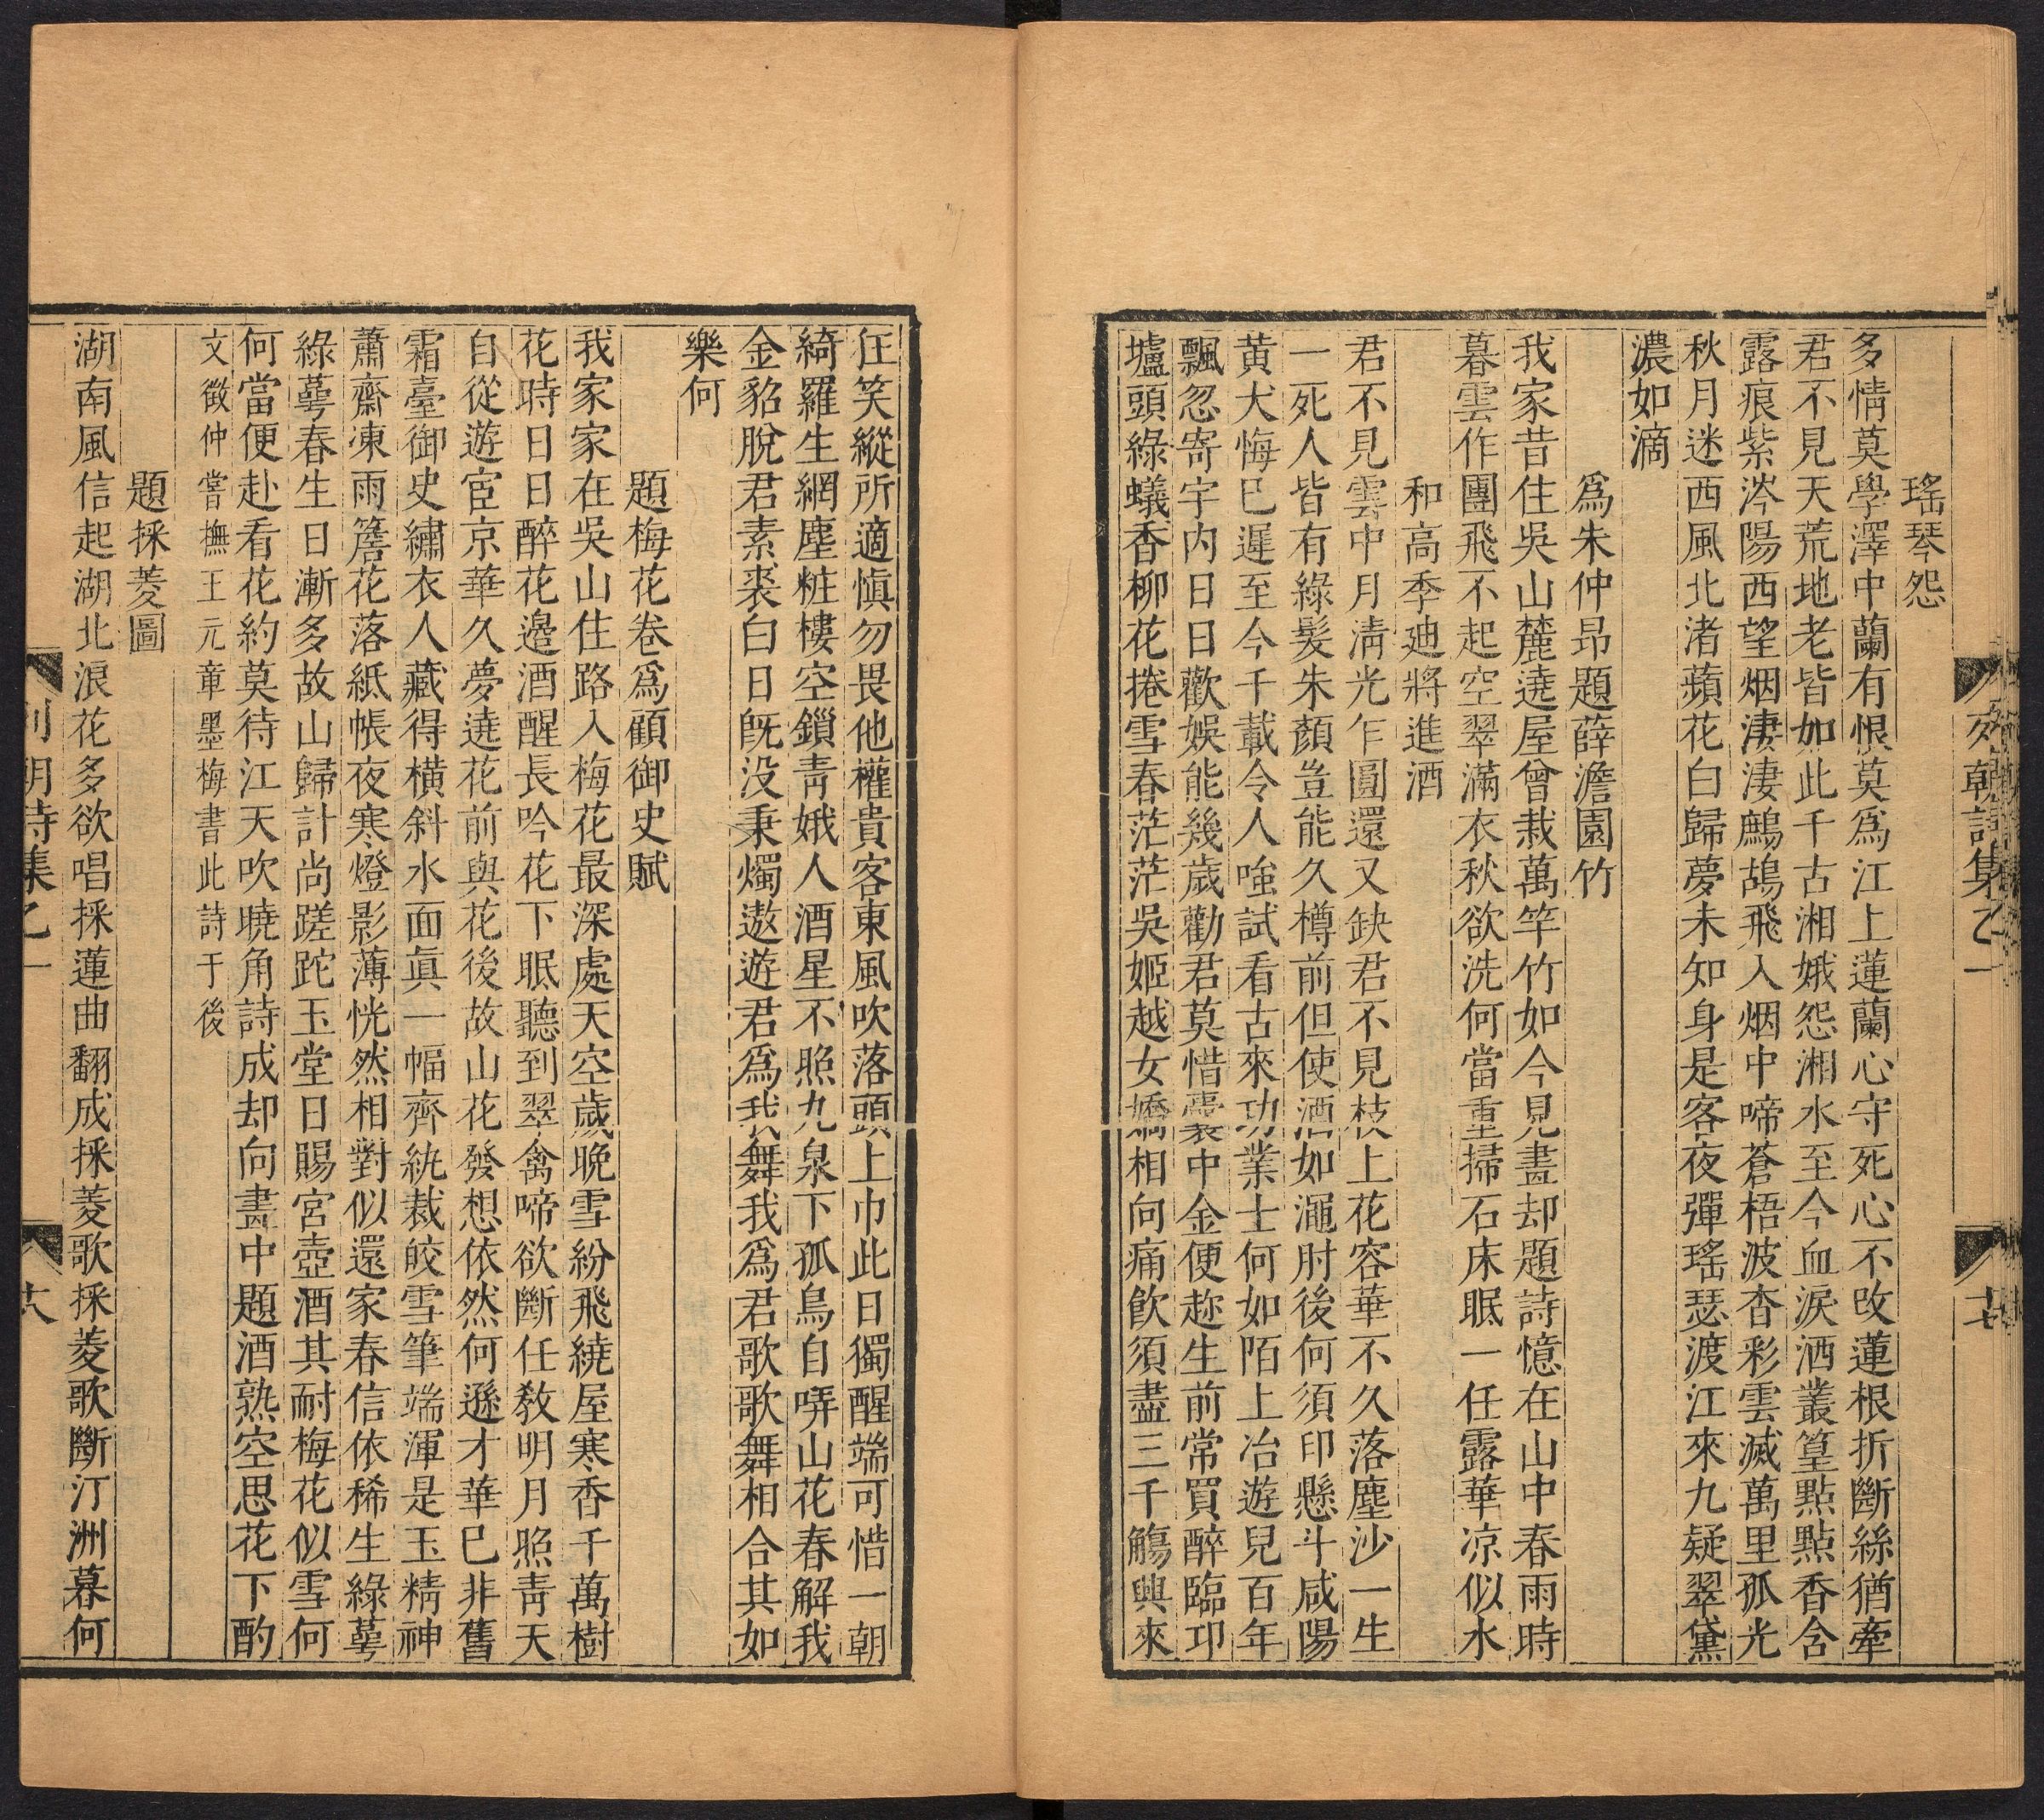 瑤琴怨
多情莫學澤中蘭有恨莫爲江上蓮蘭心守死心不改蓮根折斷絲猶牽
君不見天荒地老皆如此千古湘娥怨湘水至今血淚洒叢篁點點香含
露痕紫涔陽西望烟淒淒鷓鴣飛入烟中啼蒼梧波杳彩雲滅萬里孤光
秋月迷西風北渚蘋花白歸夢未知身是客夜彈瑤瑟渡江來九疑翠黛
濃如滴
爲朱仲昂題薛澹園竹
我家昔住吳山麓遶屋曾栽萬竿竹如今見畫却題詩憶在山中春雨時
暮雲作團飛不起空翠滿衣秋欲洗何當重掃石床眠一任露華凉似水
和高季廸將進酒
君不見雲中月清光乍圓還又缺君不見枝上花容華不久落塵沙一生
一死人皆有綠髮朱顏豈能久樽前但使酒如澠肘後何須印懸斗咸陽
黃犬悔已遲至今千載令人嗤試看古來功業士何如陌上冶遊兒百年
飄忽寄宇内日日歡娛能幾歲勸君莫惜囊中金便趂生前常買醉臨卭
壚頭綠蟻香柳花捲雪春茫茫吳姬越女嬌相向痛飲須盡三千觴興來
列朝詩集乙一
十七
狂笑縱所適愼勿畏他權貴客東風吹落頭上巾此日獨醒端可惜一朝
綺羅生網塵粧樓空鎖靑娥人酒星不照九泉下孤鳥自哢山花春解我
金貂脫君素裘白日旣没秉燭遨遊君爲我舞我爲君歌歌舞相合其如
樂何
題梅花卷爲顧御史賦
我家家在吳山住路入梅花最深處天空歲晚雪紛飛繞屋寒香千萬樹
花時日日醉花邊酒醒長吟花下眠聽到翠禽啼欲斷任敎明月照靑天
自從遊宦京華久夢遶花前與花後故山花發想依然何遜才華已非舊
霜臺御史繡衣人藏得橫斜水面眞一幅齊紈裁皎雪筆端渾是玉精神
蕭齋凍雨簷花落紙帳夜寒燈影薄恍然相對似還家春信依稀生綠萼
綠萼春生日漸多故山歸計尚蹉跎玉堂日賜宮壺酒其耐梅花似雪何
何當便赴看花約莫待江天吹曉角詩成却向畫中題酒熟空思花下酌
文徵仲嘗撫王元章墨梅書此詩于後
題採菱圖
湖南風信起湖北浪花多欲唱採蓮曲翻成採菱歌採菱歌斷汀洲暮何
列朝詩集乙一
十八